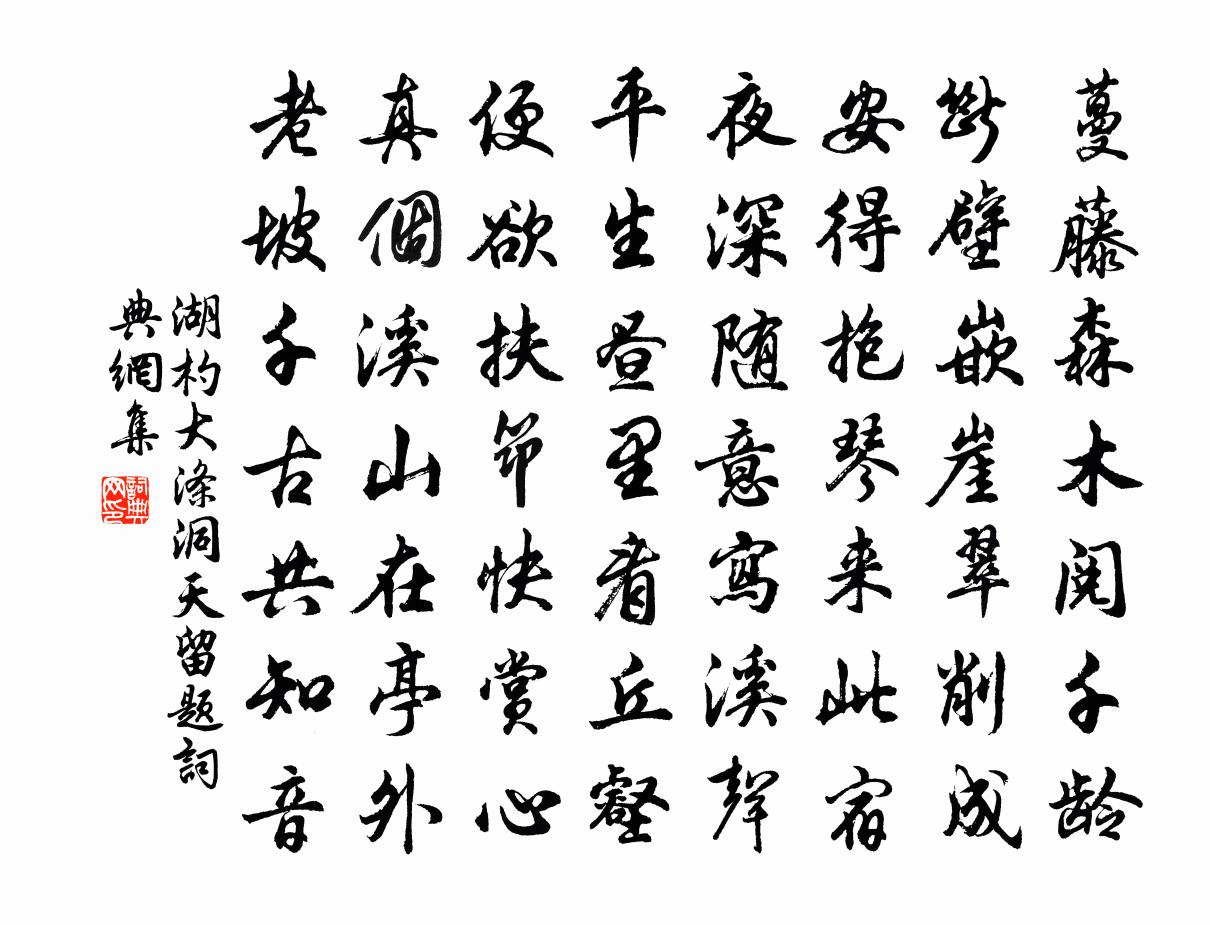 蔓藤森木閱千龄
斷壁嵌崖翠削成
安得抱琴来此宿
夜深随意寫溪聲
平生昼里看丘壑
便欲扶筇快賞心
真個溪山在亭外
老坡千古共知音
湖杓大涤洞天留题詞
典網集
詞典
网印